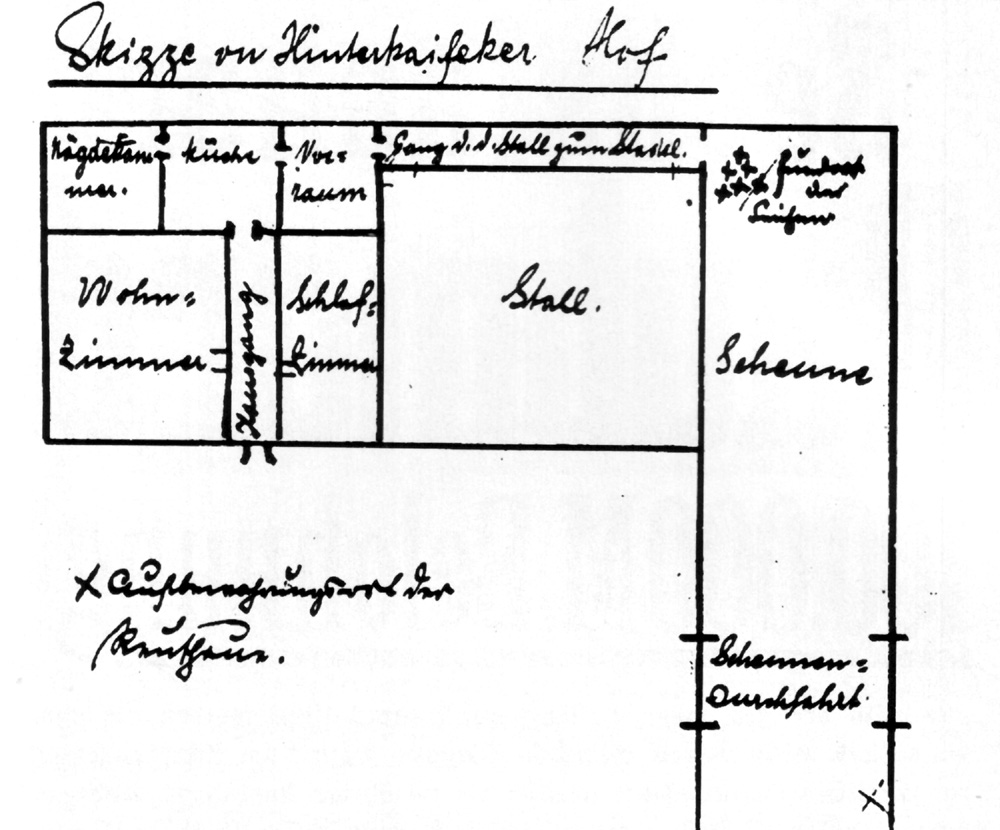 Skizze von Hinterkaifeker Hof
Mägdekam-
mer.
Küche
Vor=
raum
Gang v. d. Stall zum Stadel.
Fundort
der
Leichen
Wohn=
Zimmer
Hausgang
Schlaf=
Zimmer
Stall.
Scheune
x Aufbewahrungsort der
Reuthaue.
Scheunen=
durchfahrt.
x